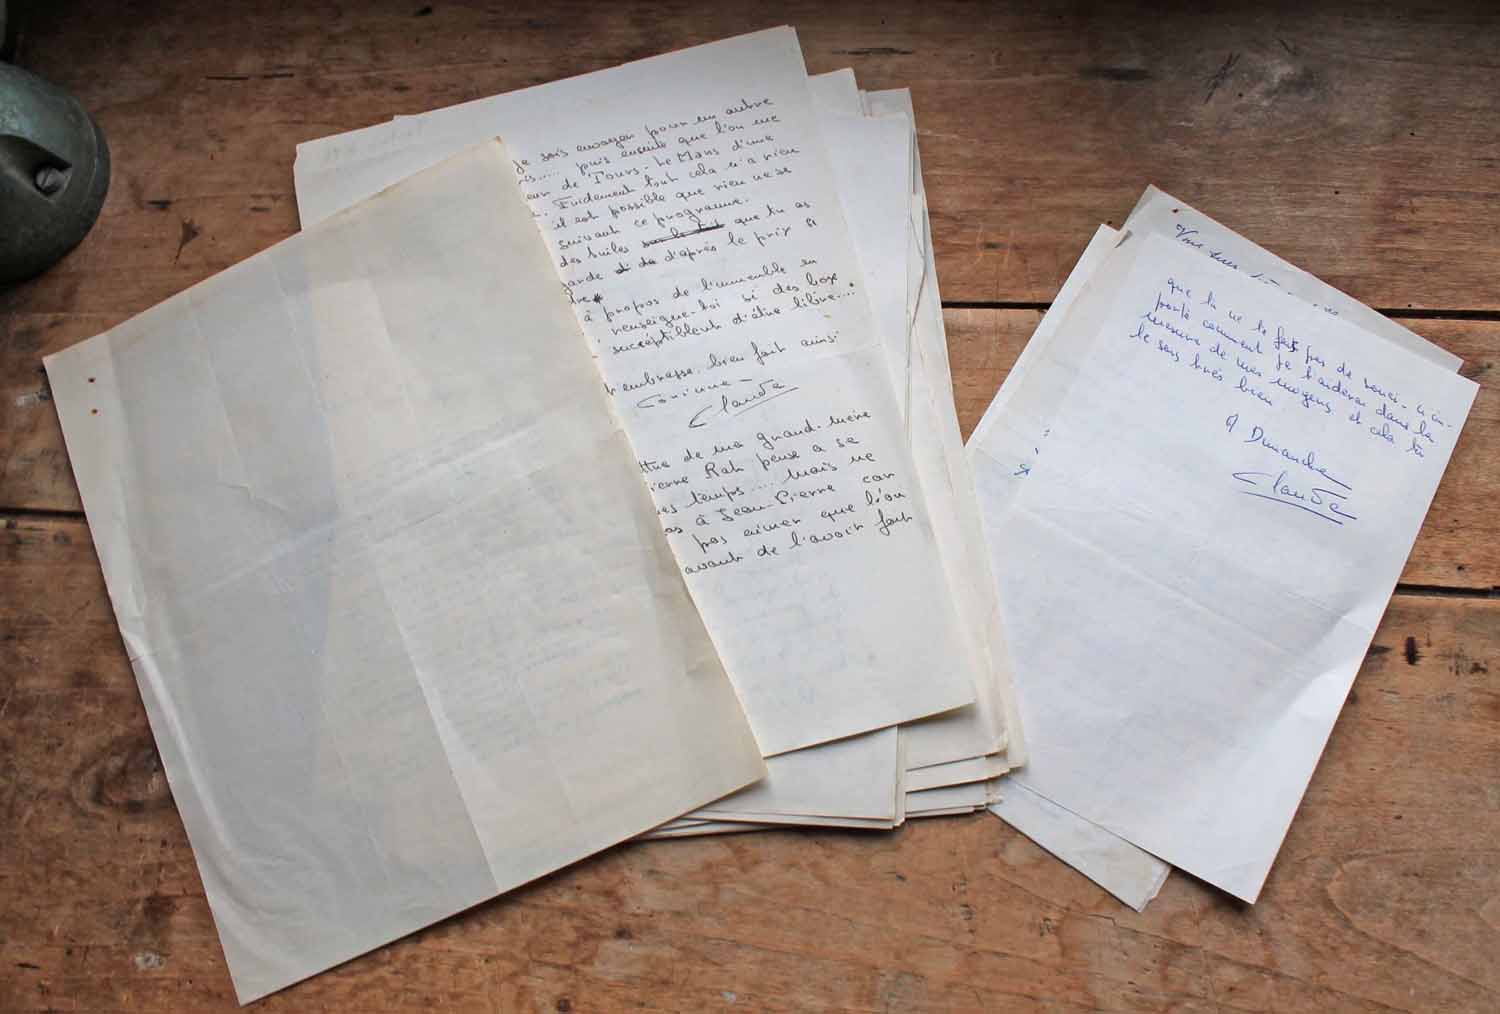 je sois envoyer pour un autre
puis ensuite que l'on me
de Tours - Le Mans d'une
Evidement tout cela n'a rien
il est possible que rien ne se
suivant ce programme.
des tuiles que tu as
garde d'après le prix à
à propos de l'immeuble su
renseigne-toi si des box
susceptiblent d'être libre....
t'embrasse bien fait ainsi
Corinne -
Claude
de ma grand-mère
Rah pense a se
temps.... mais ne
as à Jean-Pierre car
pas aimer que l'on
avant de l'avoir fait
que tu ne te fais pas de souci - n'im-
porte comment je t'aiderai dans la
mesure de mes moyens et cela tu
le sais très bien
A Dimanche
Claude